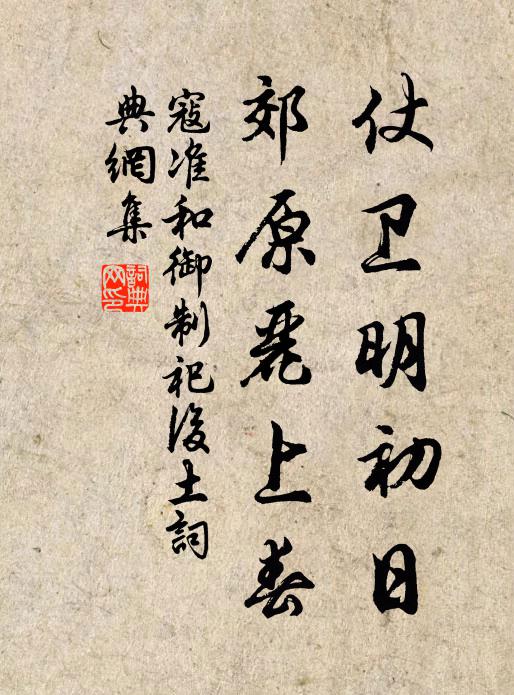 仗卫明初日
郊原丽上春
寇准和御制祀后土词
典網集
詞典网印